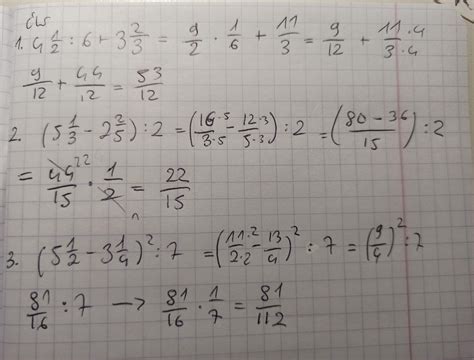 ćw
1. 4 1/2 : 6 + 3 2/3 = 9/2 · 1/6 + 11/3 = 9/12 + 11·4/3·4
9/12 + 44/12 = 53/12
2. (5 1/3 - 2 2/5) : 2 = (16·5/3·5 - 12·3/5·3) : 2 = (80 - 36/15) : 2
= 44 22/15 · 1/2 1 = 22/15
3. (5 1/2 - 3 1/4)² : 7 = (11·2/2·2 - 13/4)² : 7 = (9/4)² : 7
81/16 : 7 → 81/16 · 1/7 = 81/112